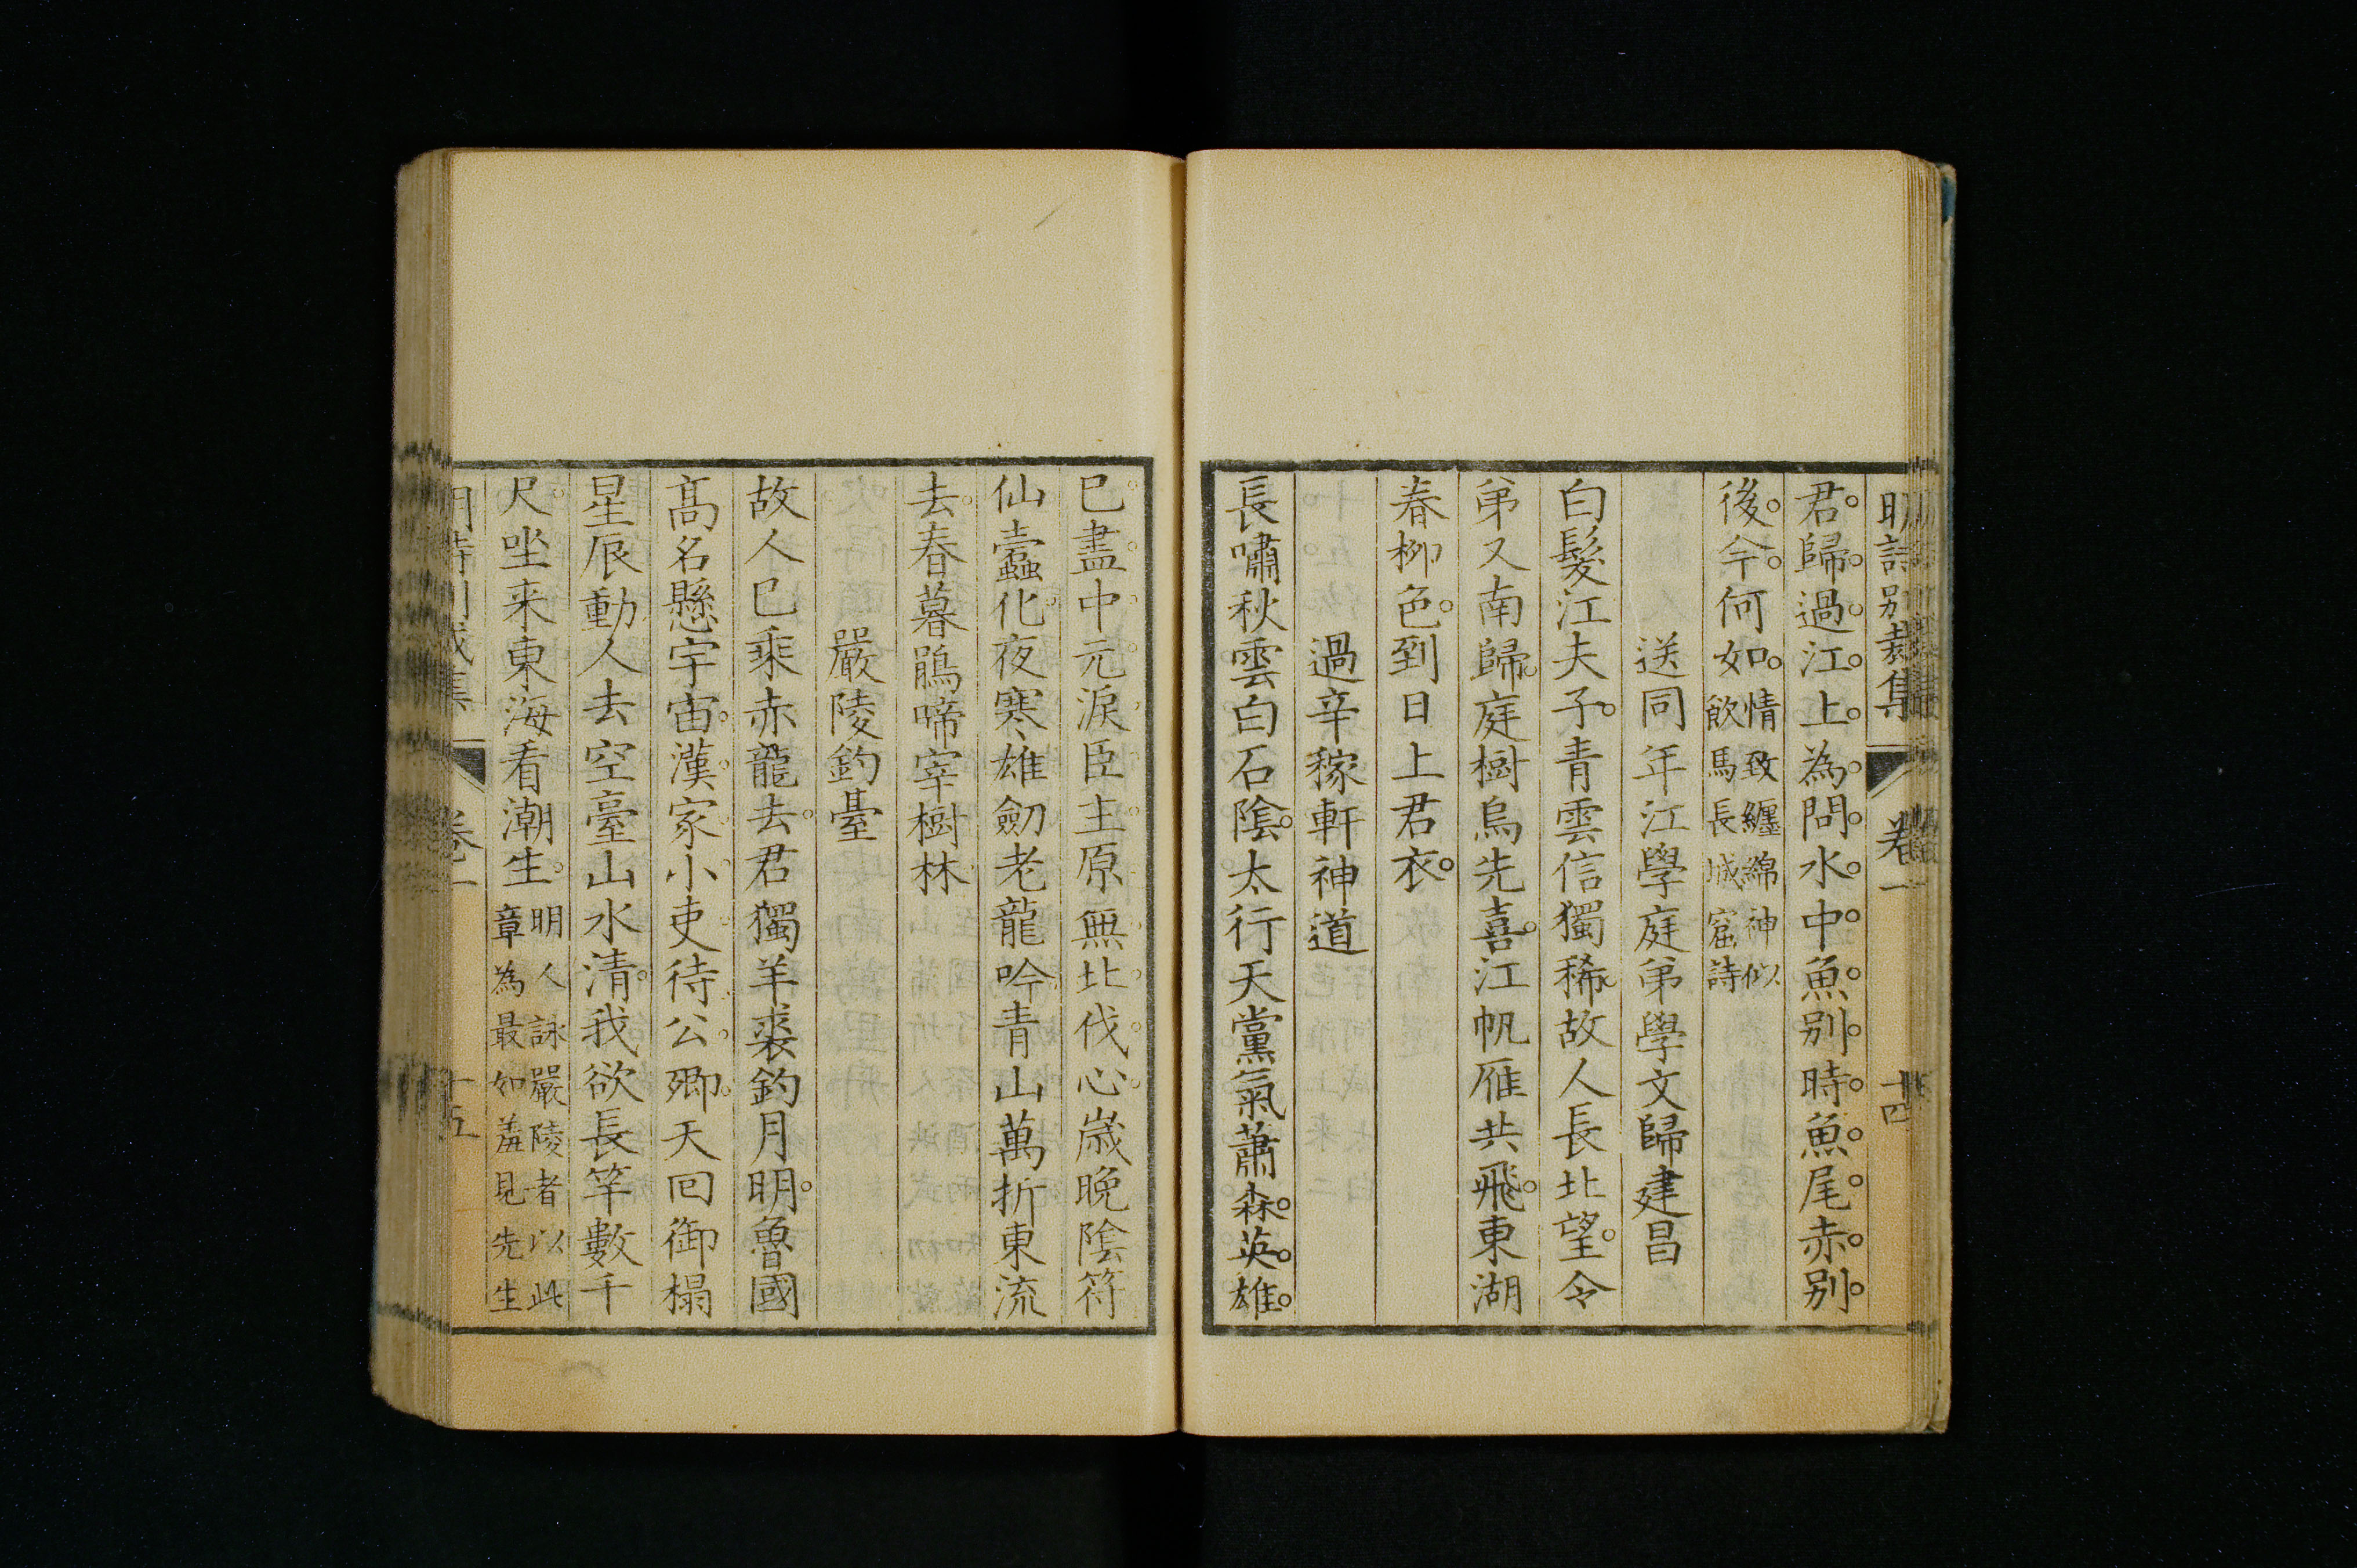 明詩別裁集 卷一 十四
君歸過江上為問水中魚別時魚尾赤別
後今何如情致纏綿神似飲馬長城窟詩
送同年江學庭弟學文歸建昌
白髮江夫子青雲信獨稀故人長北望令
弟又南歸庭樹烏先喜江帆雁共飛東湖
春柳色到日上君衣
過辛稼軒神道
長嘯秋雲白石陰太行天黨氣蕭森英雄
已盡中元淚臣主原無北伐心歲晚陰符
仙蠹化夜寒雄劒老龍吟青山萬折東流
去春暮鵑啼宰樹林
嚴陵釣臺
故人已乘赤龍去君獨羊裘釣月明魯國
高名懸宇宙漢家小吏待公卿天回御榻
星辰動人去空臺山水清我欲長竿數千
尺坐来東海看潮生明人詠嚴陵者以此章為最如羞見先生
明詩別裁集 卷一 十五